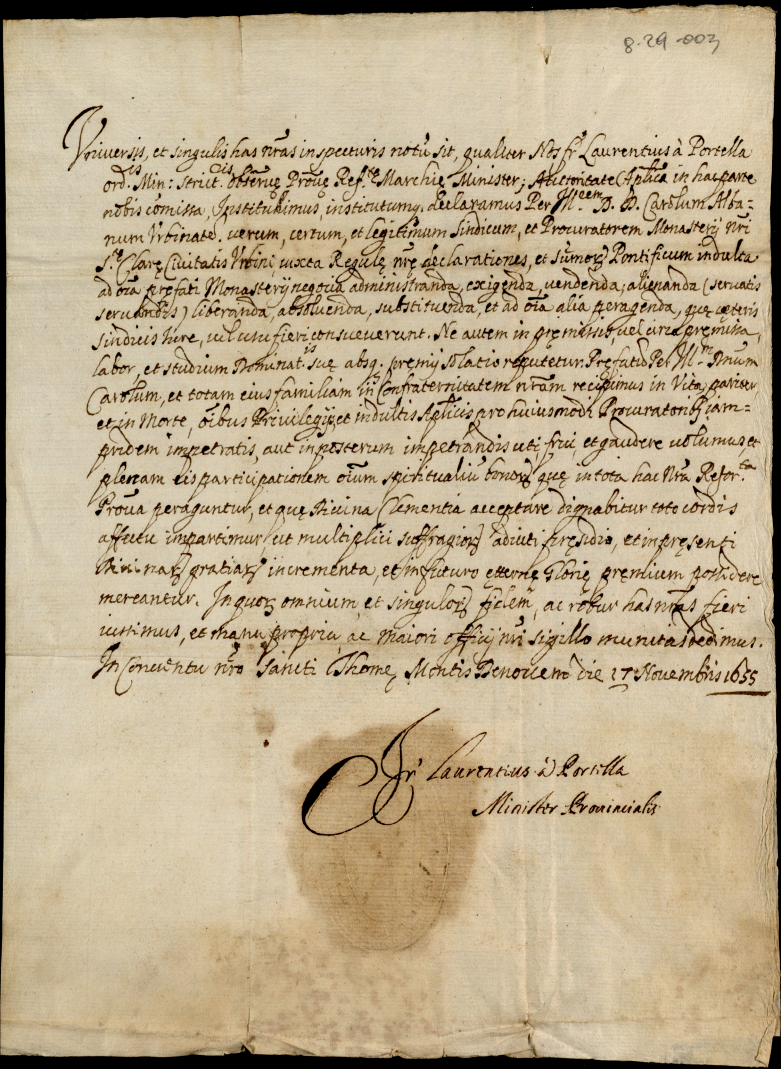 8.29-003
Universis, et singulis has nr̃as inspecturis notũ sit, qualiter Nos fr̃ Laurentius à Portella
ord.is Min: strict. obseruę Prouę Ref.tę Marchię Minister; Auctoritate Aplica in hac parte
nobis comissa, Instituimus, institutumq; declaramus Per M. D. D. Carolum Alba-
num Vrbinate. uerum, certum, et legitimum sindicum, et Procuratorem Monasterij nr̃i
S.tę Clarę Ciuitatis Vrbini, iuxta Regulę nr̃ę declarationes, et sumoꝝ Pontificum indulta
ad oĩa pręfati Monasterij negocia administranda, exigenda, uendenda, alienanda (seruatis
seruandis) liberanda, absoluenda, substituenda, et ad oĩa alia peragenda, quę cęteris
sindicis iure, uel usu fieri consueuerunt. Ne autem in pręmissis, uel circa pręmissa,
labor, et studium Dominat.is suę absq; premij solatio reputetur Pręfatũ Per M. Dnum
Carolum, et totam eius familiam in Confraternitatem nr̃am recipimus in Vita pariter,
et in Morte, oĩbus Priuilegijs, et indultis Aplicis pro huiusmodi Procuratoribꝫ iam-
pridem impetratis, aut in posterum impetrandis uti, frui, et gaudere uolumus, et
plenam eis participationem oĩum spiritualiũ bonoꝝ, quę in tota hac Nr̃a Refor.ta
Proua peraguntur, et quę Diuina Clementia acceptare dignabitur toto cordis
affectu impartimur, ut multiplici suffragioꝝ adiuti pręsidio, et in pręsenti
Diuinaꝝ gratiaꝝ incrementa, et in futuro ęternę Glorię premium possidere
mereantur. In quoꝝ omnium, et singuloꝝ fidem, ac robur has nr̃as fieri
iussimus, et manu propria, ac maiori officij nr̃i sigillo munitas dedimus.
In Conuentu nr̃o Sancti Thomę Montis die 17 Nouembris 1655
Fr̃ Laurentius à Portella
Minister Prouincialis